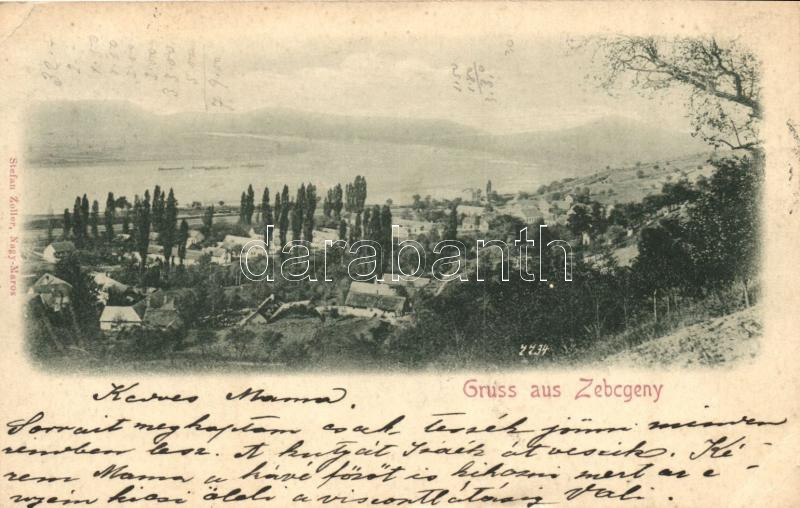 Stefan Zoller, Nagy-Maros
darabanth
7734
Gruss aus Zebegeny
Kedves Mama.
Sorrait meghaptam csak tessék jönni minden
rendben lesz. A kutyát Izáék átveszik. Ké-
rem Mama a kávé főzőt is kihozni mert az e-
nyém kicsi öleli a viszontlátásig Vali.